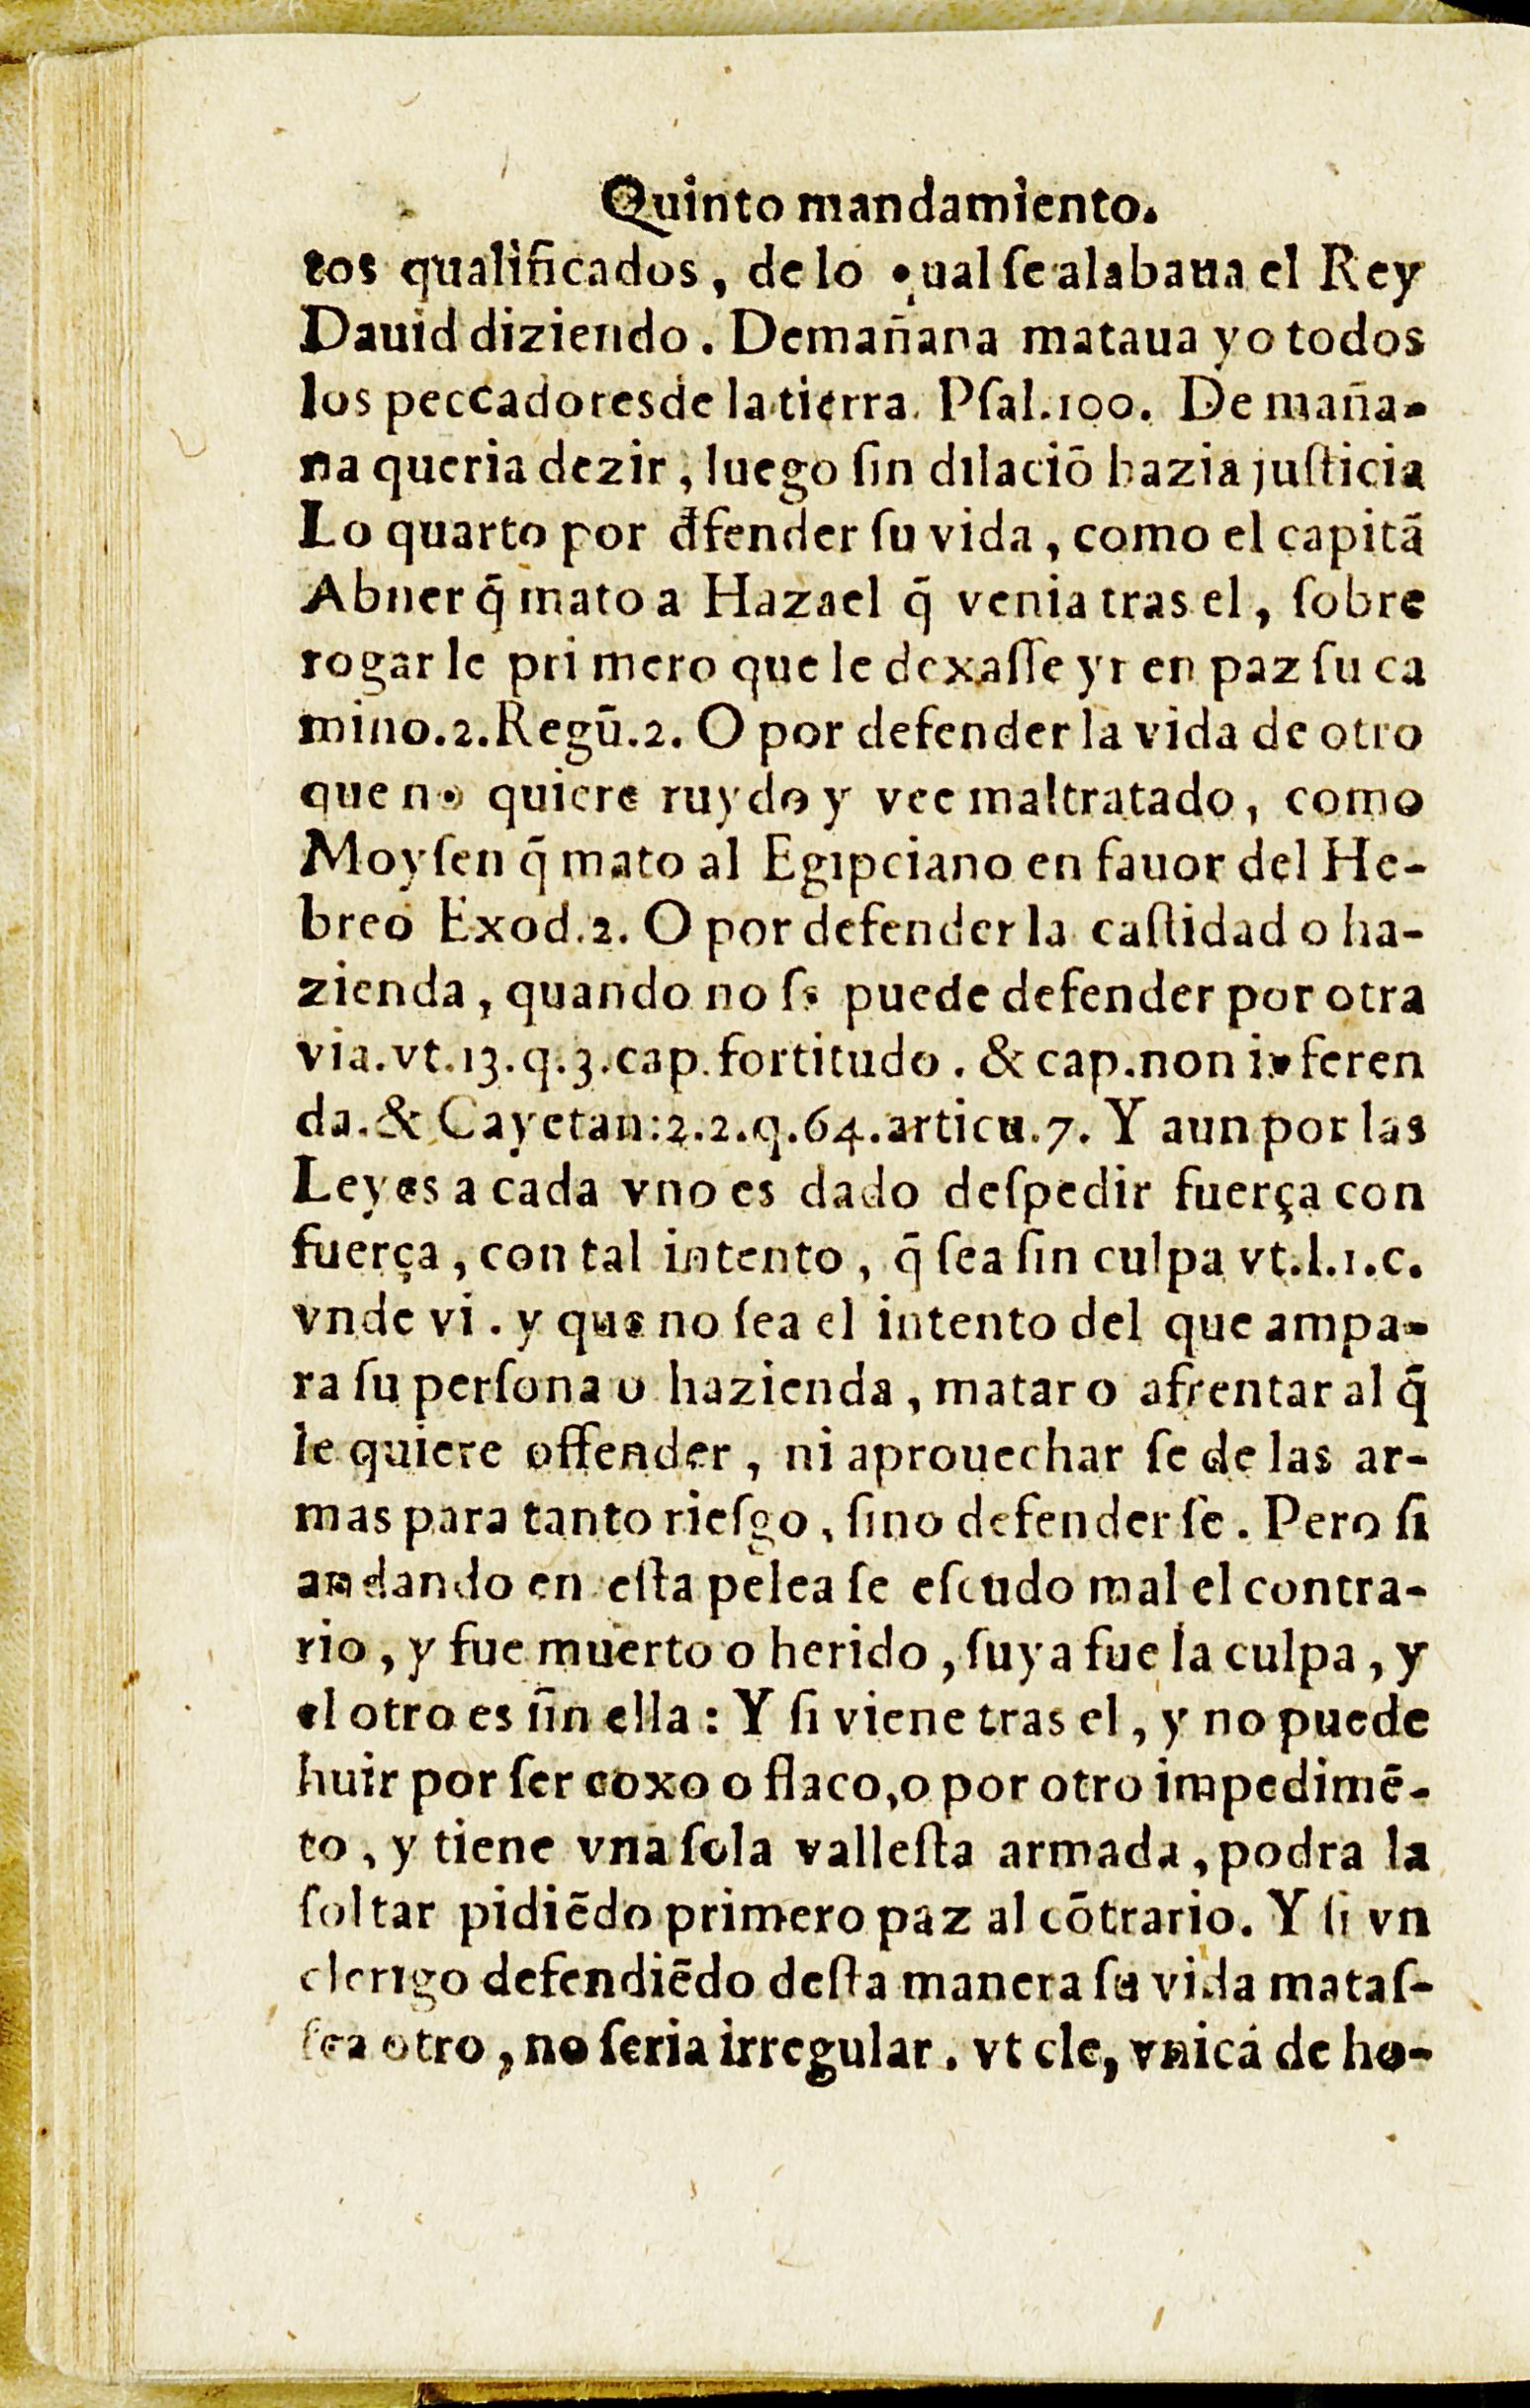 Quinto mandamiento.
tos qualificados, de lo qual ſe alabaua el Rey
Dauid diziendo. Demañana mataua yo todos
los peccadores de la tierra. Pſal.100. De maña-
na queria dezir, luego ſin dilaciō hazia juſticia
Lo quarto por đfender ſu vida, como el capitā
Abner q̄ mato a Hazael q̄ venia tras el, ſobre
rogar le primero que le dexaſſe yr en paz ſu ca
mino.2.Regū.2. O por defender la vida de otro
que no quiere ruydo y vee maltratado, como
Moyſen q̄ mato al Egipciano en fauor del He-
breo Exod.2. O por defender la caſtidad o ha-
zienda, quando no ſe puede defender por otra
via.vt.13.q.3.cap.fortitudo. & cap.non inferen
da.& Cayetan:2.2.q.64.articu.7. Y aun por las
Leyes a cada vno es dado deſpedir fuerça con
fuerça, con tal intento, q̄ ſea ſin culpa vt.l.1.c.
vnde vi. y que no ſea el intento del que ampa-
ra ſu perſona o hazienda, matar o afrentar al q̄
le quiere offender, ni aprouechar ſe de las ar-
mas para tanto rieſgo, ſino defender ſe. Pero ſi
andando en eſta pelea ſe eſcudo mal el contra-
rio, y fue muerto o herido, ſuya fue la culpa, y
el otro es ſin ella: Y ſi viene tras el, y no puede
huir por ſer coxo o flaco, o por otro impedimē-
to, y tiene vna ſola valleſta armada, podra la
ſoltar pidiēdo primero paz al cōtrario. Y ſi vn
clerigo defendiēdo deſta manera ſu vida mataſ-
ſea otro, no ſeria irregular. vt cle, vnica de ho-